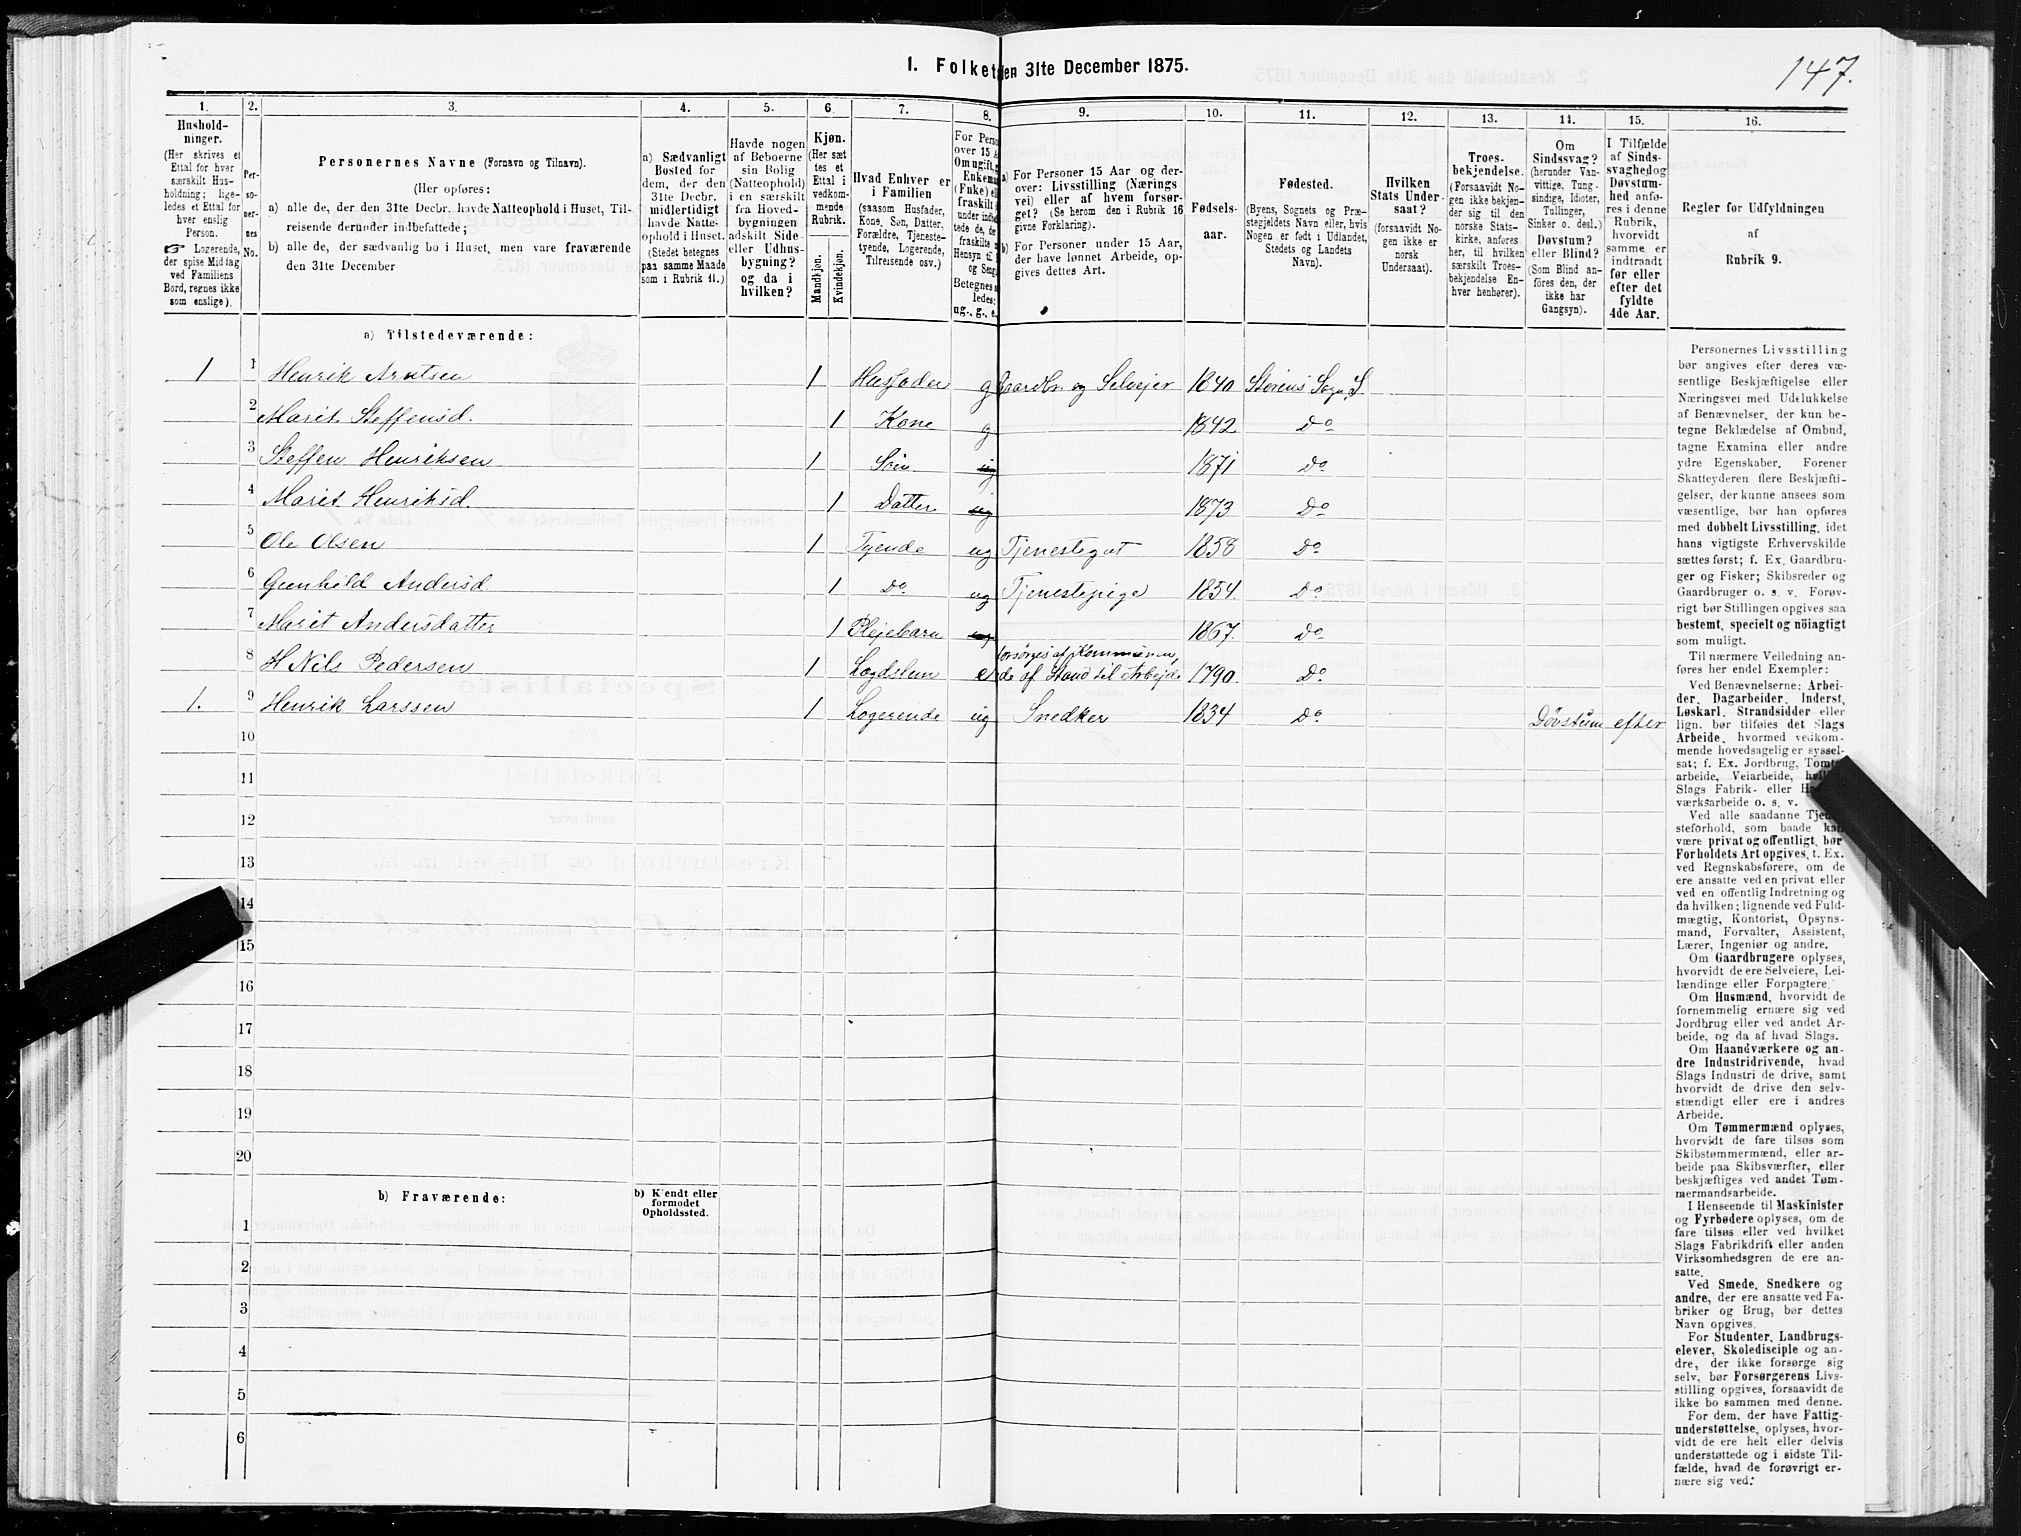 147.
1. Folket den 31te December 1875.
1. 2. 3. 4. 5. 6. 7. 8. 9. 10. 11. 12. 13. 14. 15. 16.
Hushold-
ninger.
(Her skrives et
Ettal for hver
særskilt Hus-
holdning; lige-
ledes et Ettal for
hver enslig
Person.
☞ Logerende,
der spise Middag
ved Familiens
Bord, regnes ikke
som enslige).
Per-
so-
ner-
nes
No.
Personernes Navne (Fornavn og Tilnavn).
(Her opføres:
a) alle de, der den 31te Decbr. havde Natteophold i Huset, Til-
reisende derunder indbefattede;
b) alle de, der sædvanlig bo i Huset, men vare fraværende
den 31te December
a) Sædvanligt
Bosted for
dem, der den
31te Decbr.
midlertidigt
havde Natte-
ophold i Huset.
(Stedet betegnes
paa samme Maade
som i Rubrik 11.)
Havde nogen
af Beboerne
sin Bolig
(Natteophold)
i en særskilt
fra Hoved-
bygningen
adskilt Side-
eller Udhus-
bygning?
og da i
hvilken?
Kjøn.
(Her sæt
tes et
Ettal i
vedkom-
mende
Rubrik.
Mandkjøn.
Kvindekjøn.
Hvad Enhver er
i Familien
(saasom Husfader,
Kone, Søn, Datter,
Forældre, Tjeneste-
tyende, Logerende,
Tilreisende osv.)
For Pers
over 15 A
Om ugift, g
Enkem
(Fnke) e
fraskilt
under indb
tede de, der
fraskilte
Hensyn til
og Seng
Betegnes s
ledes:
ug., g., e.
a) For Personer 15 Aar og der-
over: Livsstilling (Nærings
vei) eller af hvem forsør-
get? (Se herom den i Rubrik 16
givne Forklaring).
b) For Personer under 15 Aar,
der have lønnet Arbeide, op-
gives dettes Art.
Fødsels-
aar.
Fødested.
(Byens, Sognets og Præ-
stegjeldets Navn eller, hvis
Nogen er født i Udlandet,
Stedets og Landets
Navn).
Hvilken
Stats Under-
saat?
(forsaavidt No-
gen ikke er
norsk
Undersaat).
Troes-
bekjendelse.
(Forsaavidt No-
gen ikke bekjen-
der sig til den
norske Stats-
kirke, anføres
her, til hvilken
særskilt Troes-
bekjendelse En-
hver henhører).
Om
Sindssvag?
(herunder Van-
vittige, Tung-
sindige, Idioter,
Tullinger,
Sinker o. desl.)
Døvstum?
eller Blind?
(Som Blind an-
føres den, der
ikke har
Gangsyn).
I Tilfælde
af Sinds-
svaghedog
Døvstum-
hed anfø-
res i denne
Rubrik,
hvorvidt
samme er
indtraadt
før eller
efter det
fyldte
4de Aar.
Regler for Udfyldningen
af
Rubrik 9.
a) Tilstedeværende:
1 1 Henrik Arntsen 1 Husfader g Gaardbr. og Selvejer 1840 Størens Sogn
2 Marit Steffensd. 1 Kone g 1842 Do
3 Steffen Henriksen 1 Søn ug 1871 Do
4 Marit Henriksd. 1 Datter ug 1873 Do
5 Ole Olsen 1 Tyende ug Tjenestegut 1858 Do
6 Gunhild Andersd 1 Do ug Tjenestepige 1854. Do
7 Marit Andersdatter 1 Plejebarn ug 1867. Do
forsørges af Kommunen,
8 Nils Pedersen 1 Lægdslem e de af Stand til Arbejde 1790. Do
1. 9 Henrik Larssen 1 Logerende ug Snedker 1834 Do Døvstum efter
10
11
12
13
14
15
16
17
18
19
20
b) Fraværende:
b) Kjendt eller
formodet
Opholdssted.
1
2
3
4
5
6
Personernes Livsstilling
bør angives efter deres væ-
sentlige Beskjæftigelse eller
Næringsvei med Udelukkelse
af Benævnelser, der kun be-
tegne Beklædelse af Ombud,
tagne Examina eller andre
ydre Egenskaber. Forener
Skatteyderen flere Beskjæfti-
gelser, der kunne ansees som
væsentlige, bør han opføres
med dobbelt Livsstilling, idet
hans vigtigste Erhvervskilde
sættes først; f. Ex. Gaardbru-
ger og Fisker; Skibsreder og
Gaardbruger o. s. v. Forøv-
rigt bør Stillingen opgives saa
bestemt, specielt og nöiagtigt
som muligt.
Til nærmere Veiledning an-
føres her endel Exempler:
Ved Benævnelserne: Arbei-
der, Dagarbeider, Inderst,
Løskarl, Strandsidder eller
lign. bør tilføies det Slags
Arbeide, hvormed vedkom-
mende hovedsagelig er syssel-
sat; f. Ex. Jordbrug, Tomte-
arbeide, Veiarbeide,
Slags Fabrik- eller
værksarbeide o. s. v.
Ved alle saadanne Tjen
steforhold, som baade kan
være privat og offentligt, bør
Forholdets Art opgives, t. Ex.
ved Regnskabsførere, om de
ere ansatte ved en privat eller
ved en offentlig Indretning og
da hvilken; lignende ved Fuld-
mægtig, Kontorist, Opsyns-
mand, Forvalter, Assistent,
Lærer, Ingeniør og andre.
Om Gaardbrugere oplyses,
hvorvidt de ere Selveiere, Lei-
lændinge eller Forpagtere.
Om Husmænd, hvorvidt de
fornemmelig ernære sig ved
Jordbrug eller ved andet Ar-
beide, og da af hvad Slags.
Om Haandværkere og an-
dre Industridrivende, hvad
Slags Industri de drive, samt
hvorvidt de drive den selv-
stændigt eller ere i andres
Arbeide.
Om Tømmermænd oplyses,
hvorvidt de fare tilsøs som
Skibstømmermænd, eller ar-
beide paa Skibsværfter, eller
beskjæftiges ved andet Tøm-
mermandsarbeide.
I Henseende til Maskinister
og Fyrbødere oplyses, om de
fare tilsøs eller ved hvilket
Slags Fabrikdrift eller anden
Virksomhedsgren de ere an-
satte.
Ved Smede, Snedkere og
andre, der ere ansatte ved Fa-
briker og Brug, bør dettes
Navn opgives.
For Studenter, Landbrugs-
elever, Skoledisciple og an-
dre, der ikke forsørge sig
selv, bør Forsørgerens Livs-
stilling opgives, forsaavidt de
ikke bo sammen med denne.
For dem, der have Fattig-
understøttelse, oplyses, hvor-
vidt de ere helt eller delvis
understøttede og i sidste Til-
fælde, hvad de forøvrigt er-
nære sig ved.